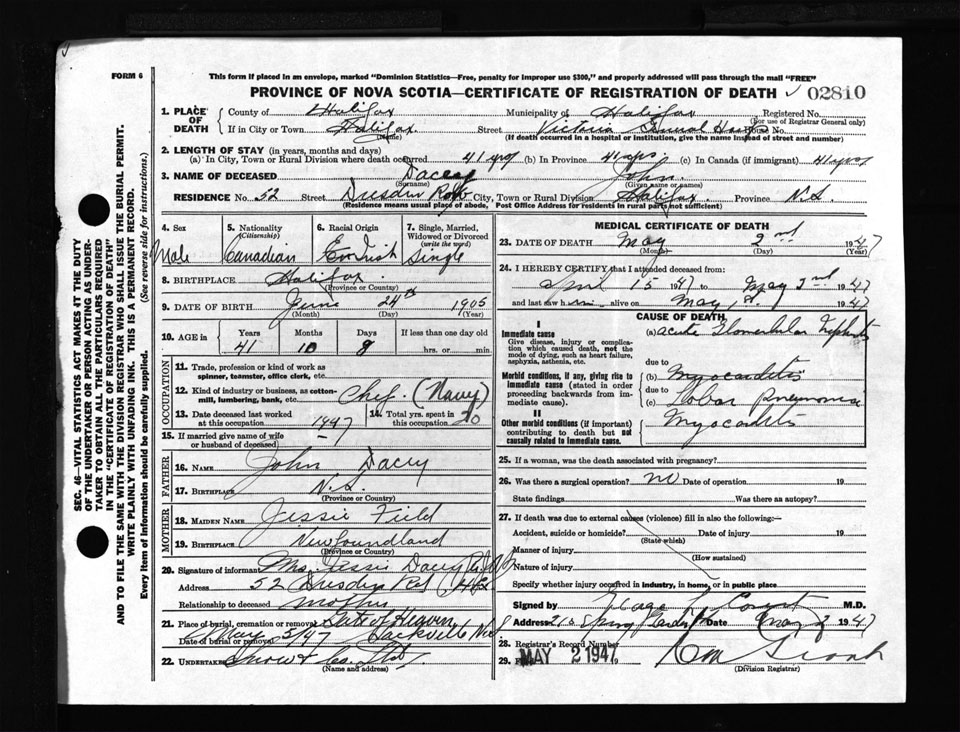 FORM 6
This form if placed in an envelope, marked "Dominion Statistics—Free, penalty for improper use $300," and properly addressed will pass through the mail "FREE"
PROVINCE OF NOVA SCOTIA—CERTIFICATE OF REGISTRATION OF DEATH 02810
1. PLACE OF DEATH
County of Halifax Municipality of Halifax Registered No.
(For use of Registrar General only)
If in City or Town Halifax Street Victoria General House No.
(Name)
(If death occurred in a hospital or institution, give the name instead of street and number)
2. LENGTH OF STAY (in years, months and days)
(a) In City, Town or Rural Division where death occurred 41 yrs (b) In Province 41 yrs. (c) In Canada (if immigrant) 41 yrs
3. NAME OF DECEASED Dacey John
(Surname) (Given name or names)
RESIDENCE No. 52 Street Dresden Row City, Town or Rural Division Halifax Province N.S.
(Residence means usual place of abode, Post Office Address for residents in rural parts not sufficient)
4. Sex Male
5. Nationality (Citizenship) Canadian
6. Racial Origin Irish
7. Single, Married, Widowed or Divorced (write the word) Single
8. BIRTHPLACE Halifax
(Province or Country)
9. DATE OF BIRTH June 24th 1905
(Month) (Day) (Year)
10. AGE in Years Months Days If less than one day old
41 10 8 hrs. or min.
11. Trade, profession or kind of work as spinner, teamster, office clerk, etc.
12. Kind of industry or business, as cotton-mill, lumbering, bank, etc. Chef. (Navy)
13. Date deceased last worked at this occupation 1947
14. Total yrs. spent in this occupation 20
15. If married give name of wife or husband of deceased —
FATHER
16. NAME John Dacey
17. BIRTHPLACE N.S.
(Province or Country)
MOTHER
18. MAIDEN NAME Jessie Field
19. BIRTHPLACE Newfoundland
(Province or Country)
20. Signature of informant Mrs. Jessie Dacey
Address 52 Dresden Rd Hfx
Relationship to deceased Mother
21. Place of burial, cremation or removal Gate of Heaven
Date of burial or removal May 5/47 Sackville N.S.
22. UNDERTAKER Snow & Co. Ltd.
(Name and address)
MEDICAL CERTIFICATE OF DEATH
23. DATE OF DEATH May 2nd 1947
(Month) (Day) (Year)
24. I HEREBY CERTIFY that I attended deceased from:
April 15 1947 to May 2nd 1947
and last saw him alive on May 1st. 1947
CAUSE OF DEATH
I
Immediate cause
Give disease, injury or complication which caused death, not the mode of dying, such as heart failure, asphyxia, asthenia, etc.
(a) acute Glomerular Nephritis
due to
Morbid conditions, if any, giving rise to immediate cause (stated in order proceeding backwards from immediate cause).
(b) Myocarditis
due to
(c) Lobar Pneumonia
II
Other morbid conditions (if important) contributing to death but not causally related to immediate cause.
Myocarditis
25. If a woman, was the death associated with pregnancy?
26. Was there a surgical operation? no Date of operation 19
State findings Was there an autopsy?
27. If death was due to external causes (violence) fill in also the following:—
Accident, suicide or homicide? Date of injury 19
(State which)
Manner of injury
(How sustained)
Nature of injury
Specify whether injury occurred in industry, in home, or in public place
Signed by M.D.
Address 210 Spring Garden Rd Date May 2 1947
28. Registrar's Record Number
29. Filed MAY 2 1947
(Division Registrar)
SEC. 46—VITAL STATISTICS ACT MAKES IT THE DUTY OF THE UNDERTAKER OR PERSON ACTING AS UNDERTAKER TO OBTAIN ALL THE PARTICULARS REQUIRED IN THE "CERTIFICATE OF REGISTRATION OF DEATH" AND TO FILE THE SAME WITH THE DIVISION REGISTRAR WHO SHALL ISSUE THE BURIAL PERMIT.
WRITE PLAINLY WITH UNFADING INK. THIS IS A PERMANENT RECORD.
Every item of information should be carefully supplied. (See reverse side for instructions.)